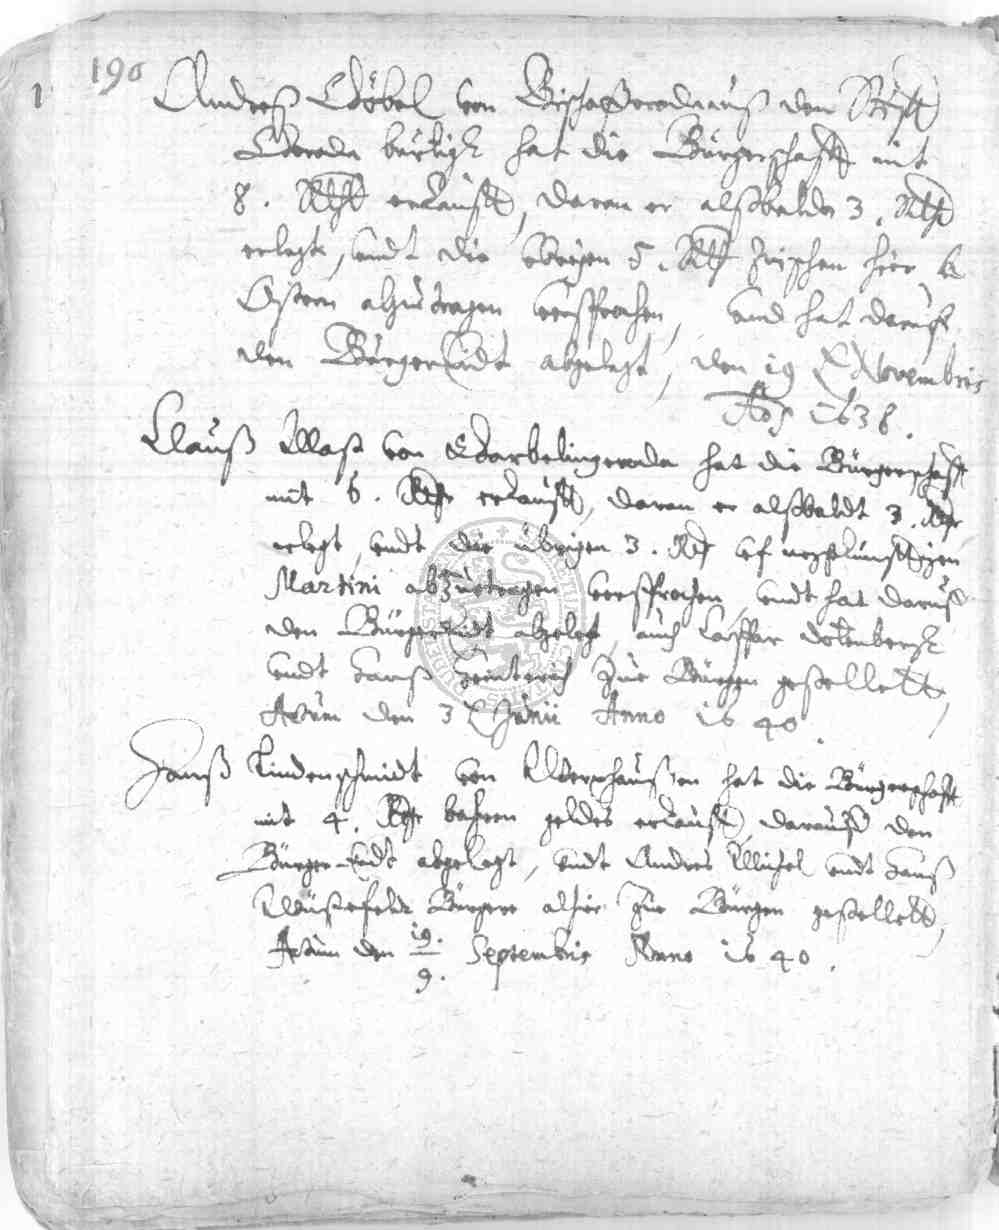 196
1
Andreß Döbel von Bischofferoda auß dem Stifft
bürtigk hat die Bürgerschafft mit
8. Rthlr erkaufft, daran er alßbalde 3. Rthlr
erlegt, undt die übrigen 5. Rthlr zwischen hier
Ostern abzutragen versprochen, und hat daruff
den Bürgereidt abgelegt, den 19 Novembris
Ao 1638.
Clauß von hat die Bürgerschafft
mit 6. Rthlr erkaufft, daran er alßbaldt 3. Rthlr
erlegt, undt die übrigen 3. Rthlr uf negstkünfftigen
Martini abzutragen versprochen, undt hat daruf
den Bürgereidt abgelegt, auch Casper
undt Hanß zue Bürgen gestellett,
Actum den 3 Junii Anno 1640.
Hanß Lindenschmidt von hat die Bürgerschafft
mit 4. Rthlr bahren geldes erkaufft, darauff den
Bürger Eidt abgelegt, undt Andres Michel undt Hanß
Wüstefeldt Bürgere alhier zue Bürgen gestellett,
Actum den 19./9. Septembris Anno 1640.